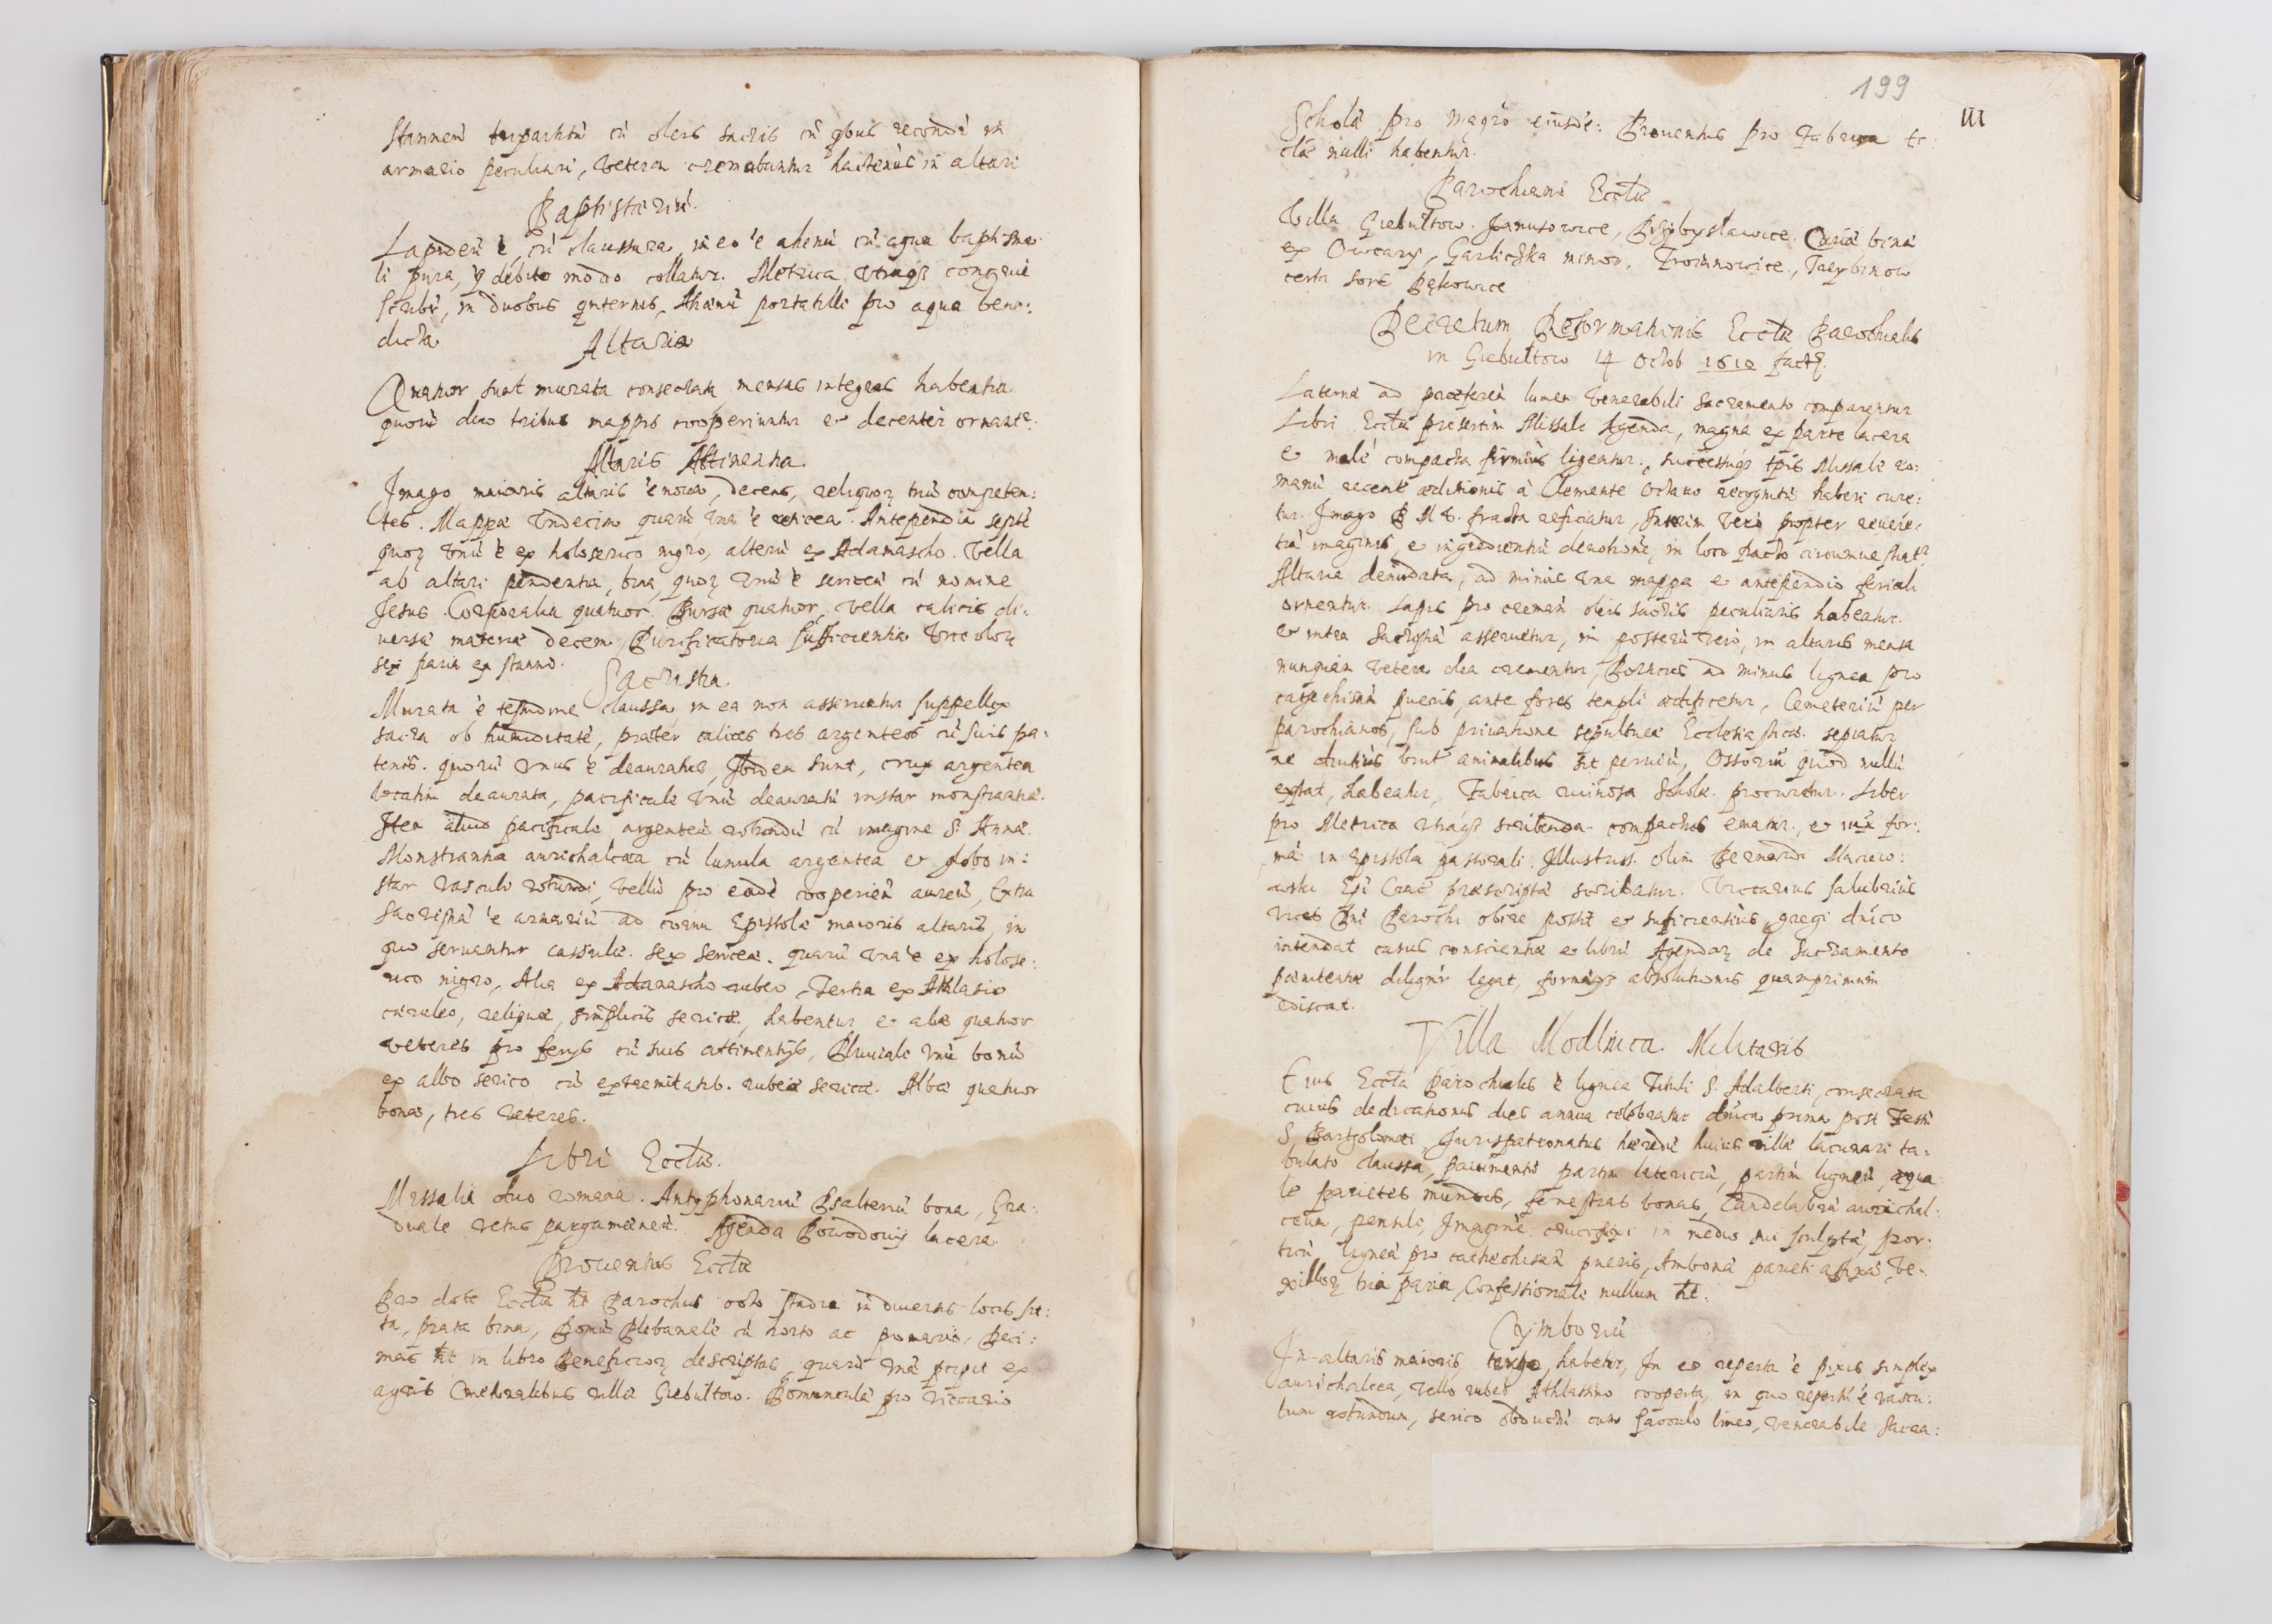 stanneū tripartitū cū oleis sacris cū qbus recondi in
armario peculiari, vetera cremabuntur hactenus in altari
Baptisteriū.
Lapideū ē, cū claussura, in eo ē ahenū cū aqua baptisma:
li pura, q debito modo collatur. Metrica utraqз congrue
scribi, in duobus qnternis, Ahenū portatili pro aqua bene:
dicta
Altaria
Quatuor sunt murata consecrata mensas integras habentia
quorū duo tribus mappis cooperiuntur et decenter ornantr.
Altaris Attinentia.
Imago maioris altaris ē nova, decens, reliquoꝝ triū competen:
tes. Mappæ undecim quarū una ē sericea. Antependia septē
quoꝝ unū ē ex holoserico nigro, alterū ex Adamascho. Vella
ab altari pendentia, bina, quoꝝ unū ē sericeū cū nomine
Jesus. Corporalia quatuor. Bursæ quatuor, vella calicis di:
versæ materiæ decem, Purificatoria sufficientia Urceoloꝝ
sex paria ex stanno.
Sacristia.
Murata ē testudine claussa, in ea non asservatur suppellex
sacra ob humiditatē, præter calices tres argenteos cū suis pa:
tenis. quorū unus ē deauratus, Ibidem sunt, crux argentea
locatim deaurata, pacificale unū deauratū instar monstrantiæ.
Item aliud pacificale argenteū rotundū cū imagine S. Annæ.
Monstrantia aurichalcea cū lunula argentea et globo in:
star vasculi rotundi, vellū pro eadē cooperien aureū, Extra
Sacristiā ē armariū ad cornu Epistolæ maioris altaris, in
quo servantur cassulæ. sex sericeæ. quarū una ē ex holose:
rico nigro, Alia ex Adamascho rubeo, Tertia ex Athlasio
cæruleo, reliquæ, simplicis sericæ, habentur et aliæ quatuor
veteres pro ferijs cū suis attinentijs, Pluviale unū bonū
ex albo serico cū extremitatib. rubeæ sericæ. Albæ quatuor
bonæ, tres veteres.
Libri Eccliæ.
Missalia duo romana. Antyphonariū Psalteriū bona, Gra:
duale vetus pargameneū. Agenda Powodovij lacera
Proventus Eccliæ
Pro dote Eccliæ ht Parochus octo stadia in diversis locis si:
ta, prata bina, Domū Plebanalē cū horto ac pomario, Deci:
mas ht in libro Beneficioꝝ descriptas, quarū unā pcipit ex
agris Cmetonalibus villæ Giebultow. Domuncula pro vicario
199
III
Schola pro magro eiusdē: Proventus pro fabrica Ec:
cliæ nulli habentur.
Parochiani Eccliæ
Villa Giebultow. Janusowice, Przybyslawice. Curiæ binæ
ex Owczary, Garliczka minor, Trojanowice,
certa sors Pękowice
Decretum Reformationis Eccliæ Parochialis
in Giebultow 14 Octob 1610 factū.
Laterna ad præferen lumen venerabili sacramento comparentur
Libri Eccliæ presertim Missale Agenda, magna ex parte lacera
et malè compacta firmius ligentur, successuqз tpis Missale ro:
manū recent æditionis à Clemente Octavo recognitū haberi cure:
tur. Imago B M V. fracta reficiatur, Interim vero propter revere:
tiā imaginis, et ingredientiū devotionē, in loco
Altaria denudata, ad minus una mappa et antependio feriali
ornentur. Lapis pro creman oleis sacris peculiaris habeatur.
et intra Sacristiā asservetur, in posterū vero, in altaris mensa
nunquam vetera olea crementur, Porticus ad minus lignea pro
catechisan pueris, ante fores templi ædificetur, Cemeteriū per
parochianos, sub privatione sepulturæ Ecclesiasticæ. sepiatur
ne diutius brutis animalibus sit perviū, Ossoriū quod nullū
extat, habeatur, Fabrica ruinosa Scholæ. procuretur. Liber
pro Metrica utraqз scribenda compactus ematur, et iux for:
mā in epistola pastorali Illustriss. olim Bernardi Macieio:
wski Epi Crac præscriptā scribatur. Vicarius salubrius
vices Dni Parochi obire possit et sufficientius gregi dnico
intendat casus conscientiæ et librū Agendoꝝ de Sacramento
pænitentiæ diligntr legat, formāqз absolutionis quamprimum
ediscat.
Villa Modlnica. Militaris
Eius Ecclia Parochialis ē lignea Tituli S. Adalberti, consecrata
cuius dedicationis dies annua celebratur dnica prima post Festū
S. Bartholomæi, Jurispatronatus hæredū huius villæ lacunari ta:
bulato claussa, pavimentū partim latericiū, partim ligneū, æqua
le parietes mundos, fenestras bonas, Candelabrū aurichal:
ceum, pensile, Imaginē crucifixi in medio sui sculptā, por:
ticū ligneā pro cathechisan pueris, Ambonā parieti affixā, Ve:
xilloꝝ tria paria, Confessionale nullum ht.
Cyboriū
In altaris maioris, tergo, habetur, In eo reperta ē pixis simplex
aurichalcea, vello rubeo Athlassino cooperta, in quo repertū ē vascu:
lum rotundum, serico obductū cum sacculo lineo, venerabile Sacra: